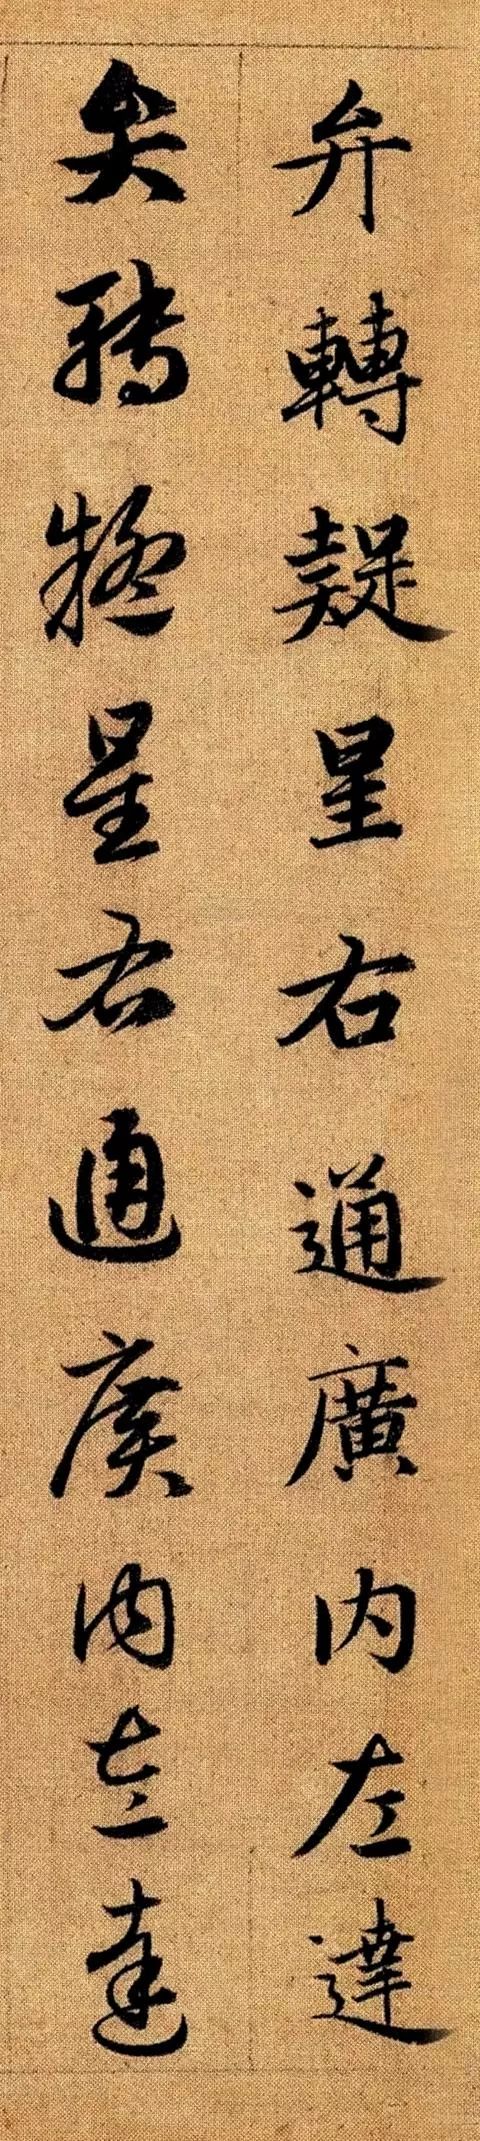 弁轉疑星右通廣内左達
弁轉疑星右通廣内左達